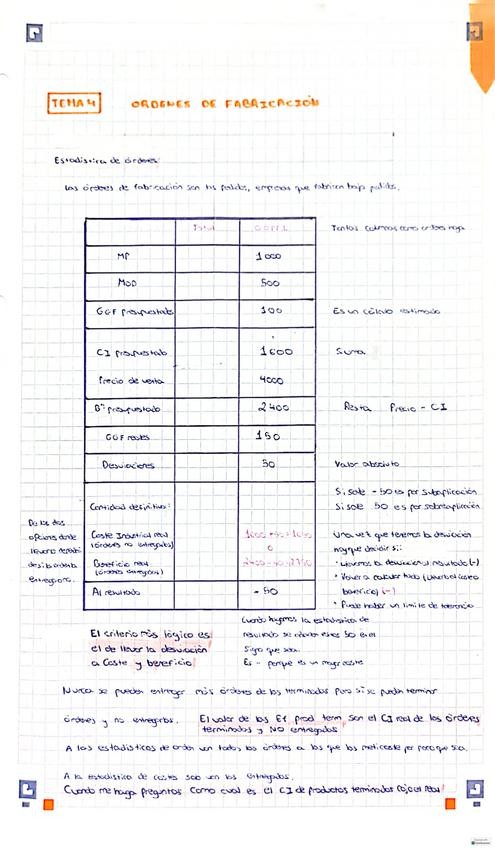 TEMA 4 ORDENES DE FABRICACIÓN
Estadística de órdenes:
Las órdenes de fabricación son los pedidos, empresas que fabrican bajo pedidos.
Total O.F. Nº 1 Tantas columnas como órdenes haya
MP 1000
MOD 500
GGF presupuestado 100 Es un cálculo estimado
CI presupuestado 1600 Suma
Precio de venta 4000
Bº presupuestado 2400 Resta Precio - CI
GGF reales 150
Desviaciones 50 Valor absoluto
Si sale - 50 es por subaplicación
Cantidad definitiva: Si sale 50 es por sobreaplicación
De las dos
opciones donde
Coste Industrial real
(órdenes no entregadas)
Una vez que tenemos la desviación
hay que decidir si:
Beneficio real
(órdenes entregadas)
· Llevamos la desviación al resultado (-)
· Volver a calcular todo
beneficio) (-)
Al resultado - 50
· Puede haber un límite de tolerancia
El criterio más lógico es
el de llevar la desviación
a Coste y beneficio
Cuando hagamos la estadística de
resultado se añaden estos 50 en el
signo que sea.
Es - porque es un mayor coste
Nunca se pueden entregar más órdenes de las terminadas pero si se pueden terminar
órdenes y no entregarlas. El valor de las Ef prod term. son el CI real de las órdenes
terminadas y NO entregadas
A las estadísticas de orden van todas las órdenes a las que las meti coste por poco que sea.
A la estadística de costes solo van las entregadas.
Cuando me haga preguntas como cual es el CI de productos terminados cojo el Real!